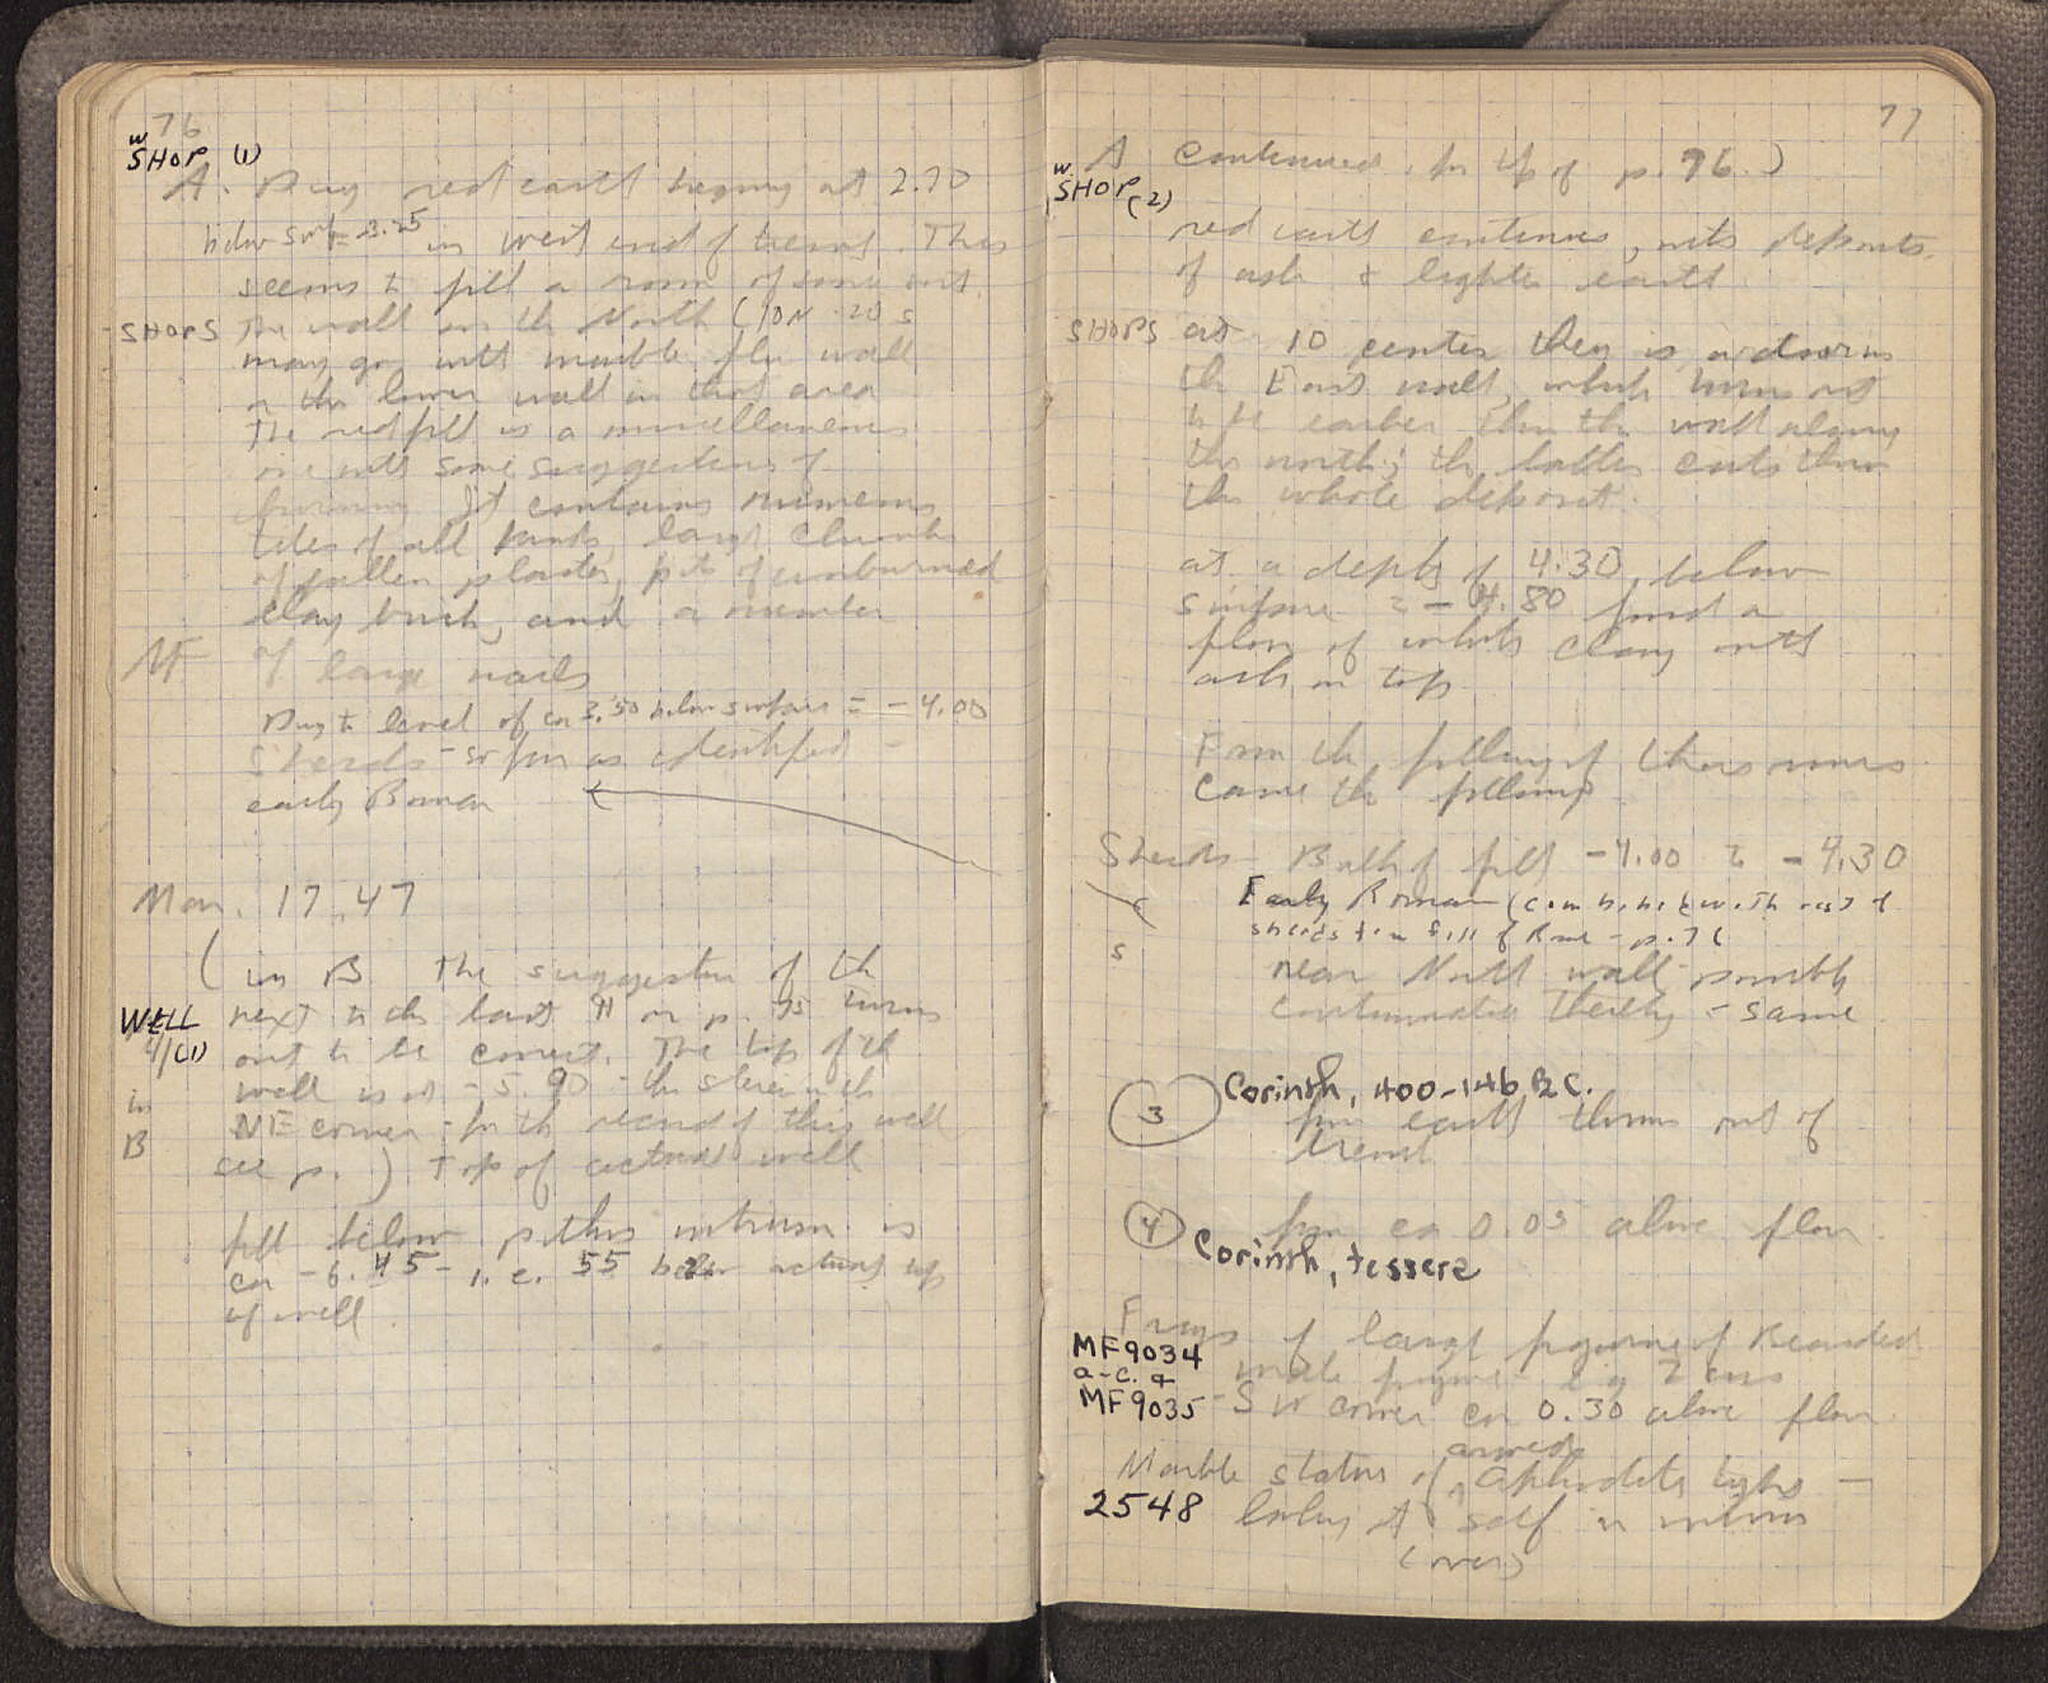 76
W SHOP (1)
A. Dug red earth beginning at 2.70
below surf = 3.25 in west end of trench. This
seems to fill a room of some sort.
SHOPS The wall on the North (10N 20 s
may go with marble floor wall
or the lower wall in that area
The red fill is a miscellaneous
one with some suggestions of
burning It contains numerous
tiles of all kinds, large chunks
of fallen plaster, bits of unburned
clay brick, and a number
MF of large nails
Dug to level of ca 3.50 below surface = - 4.00
Sherds - so far as identified -
early Roman
Mar. 17, 47
( in B The suggestion of the
WELL next to the last ¶ on p. 75 turns
4/(1) out to be correct. The top of the
in well is at - 5.90 - the stone in the
B NE corner - for the record of this well
see p. ) Top of actual well
fill below pithos intrusion is
ca - 6.45 - i.e. 55 below actual top
of well.
77
W. SHOP (2) A Continued, for top of p. 76.)
red earth continues, with deposits
of ash & lighter earth
SHOPS at 10 center there is a
the East wall, which turns out
to be earlier than the wall along
the north; the latter cuts thru
the whole deposit.
at a depth of 4.30 below
surface = - 4.80 found a
floor of white clay with
ash on top
From the filling of this room
came the following
Sherds - Bulk of fill - 4.00 to - 4.30
Early Roman (combined with rest of
sherds from fill of Room - p. 76
s near North wall possibly
contaminated thereby - same
3 Corinth, 400-146 B.C.
from earth thrown out of
trench
4 from ca 0.05 above floor
Corinth, tessera
Frags of large figurine of Bearded
MF9034 male figure e.g. Zeus
a-c. &
MF9035 - SW corner ca 0.30 above floor
armed
Marble statue of Aphrodite type -
2548 looking at self in mirror
(over)